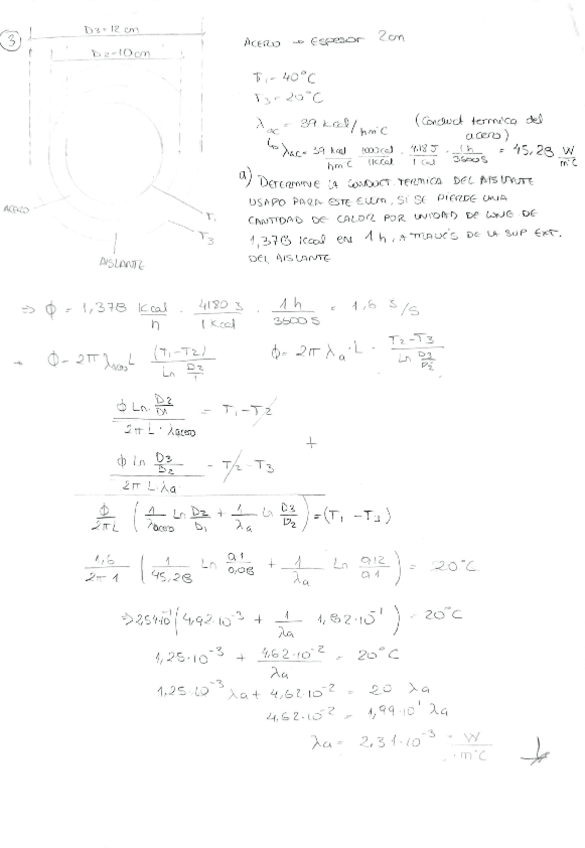 3
D3=12 cm
D2=10 cm
ACERO → ESPESOR 2cm
T1=40°C
T3=20°C
λac = 39 kcal/hm°C (Conduct termica del acero)
↳ λac = 39 kcal/hm°C · 1000 cal/1 kcal · 4,18 J/1 cal · 1h/3600 s = 45,28 W/m°C
a) DETERMINE LA CONDUCT. TERMICA DEL AISLANTE
USADO PARA ESTE ELEM, SI SE PIERDE UNA
CANTIDAD DE CALOR POR UNIDAD DE LONG DE
1,378 kcal EN 1h, A TRAVÉS DE LA SUP EXT.
DEL AISLANTE
ACERO
T1
T3
AISLANTE
⇒ ϕ = 1,378 kcal/h · 4180 J/1 kcal · 1h/3600 s = 1,6 J/s
→ ϕ = 2π λacero L (T1-T2)/Ln D2/1 ϕ = 2π λa · L · T2-T3/Ln D3/D2
ϕ Ln D2/D1 / 2π L · λacero = T1 - T2
+
ϕ ln D3/D2 / 2π L λa = T2 - T3
ϕ/2πL (1/λacero Ln D2/D1 + 1/λa Ln D3/D2) = (T1 - T3)
1,6/2π 1 (1/45,28 Ln 0,1/0,08 + 1/λa Ln 0,12/0,1) = 20°C
⇒ 2,54·10⁻¹ (4,92·10⁻³ + 1/λa 1,82·10⁻¹) = 20°C
1,25·10⁻³ + 4,62·10⁻²/λa = 20°C
1,25·10⁻³ λa + 4,62·10⁻² = 20 λa
4,62·10⁻² = 1,99·10¹ λa
λa = 2,31·10⁻³ W/m°C